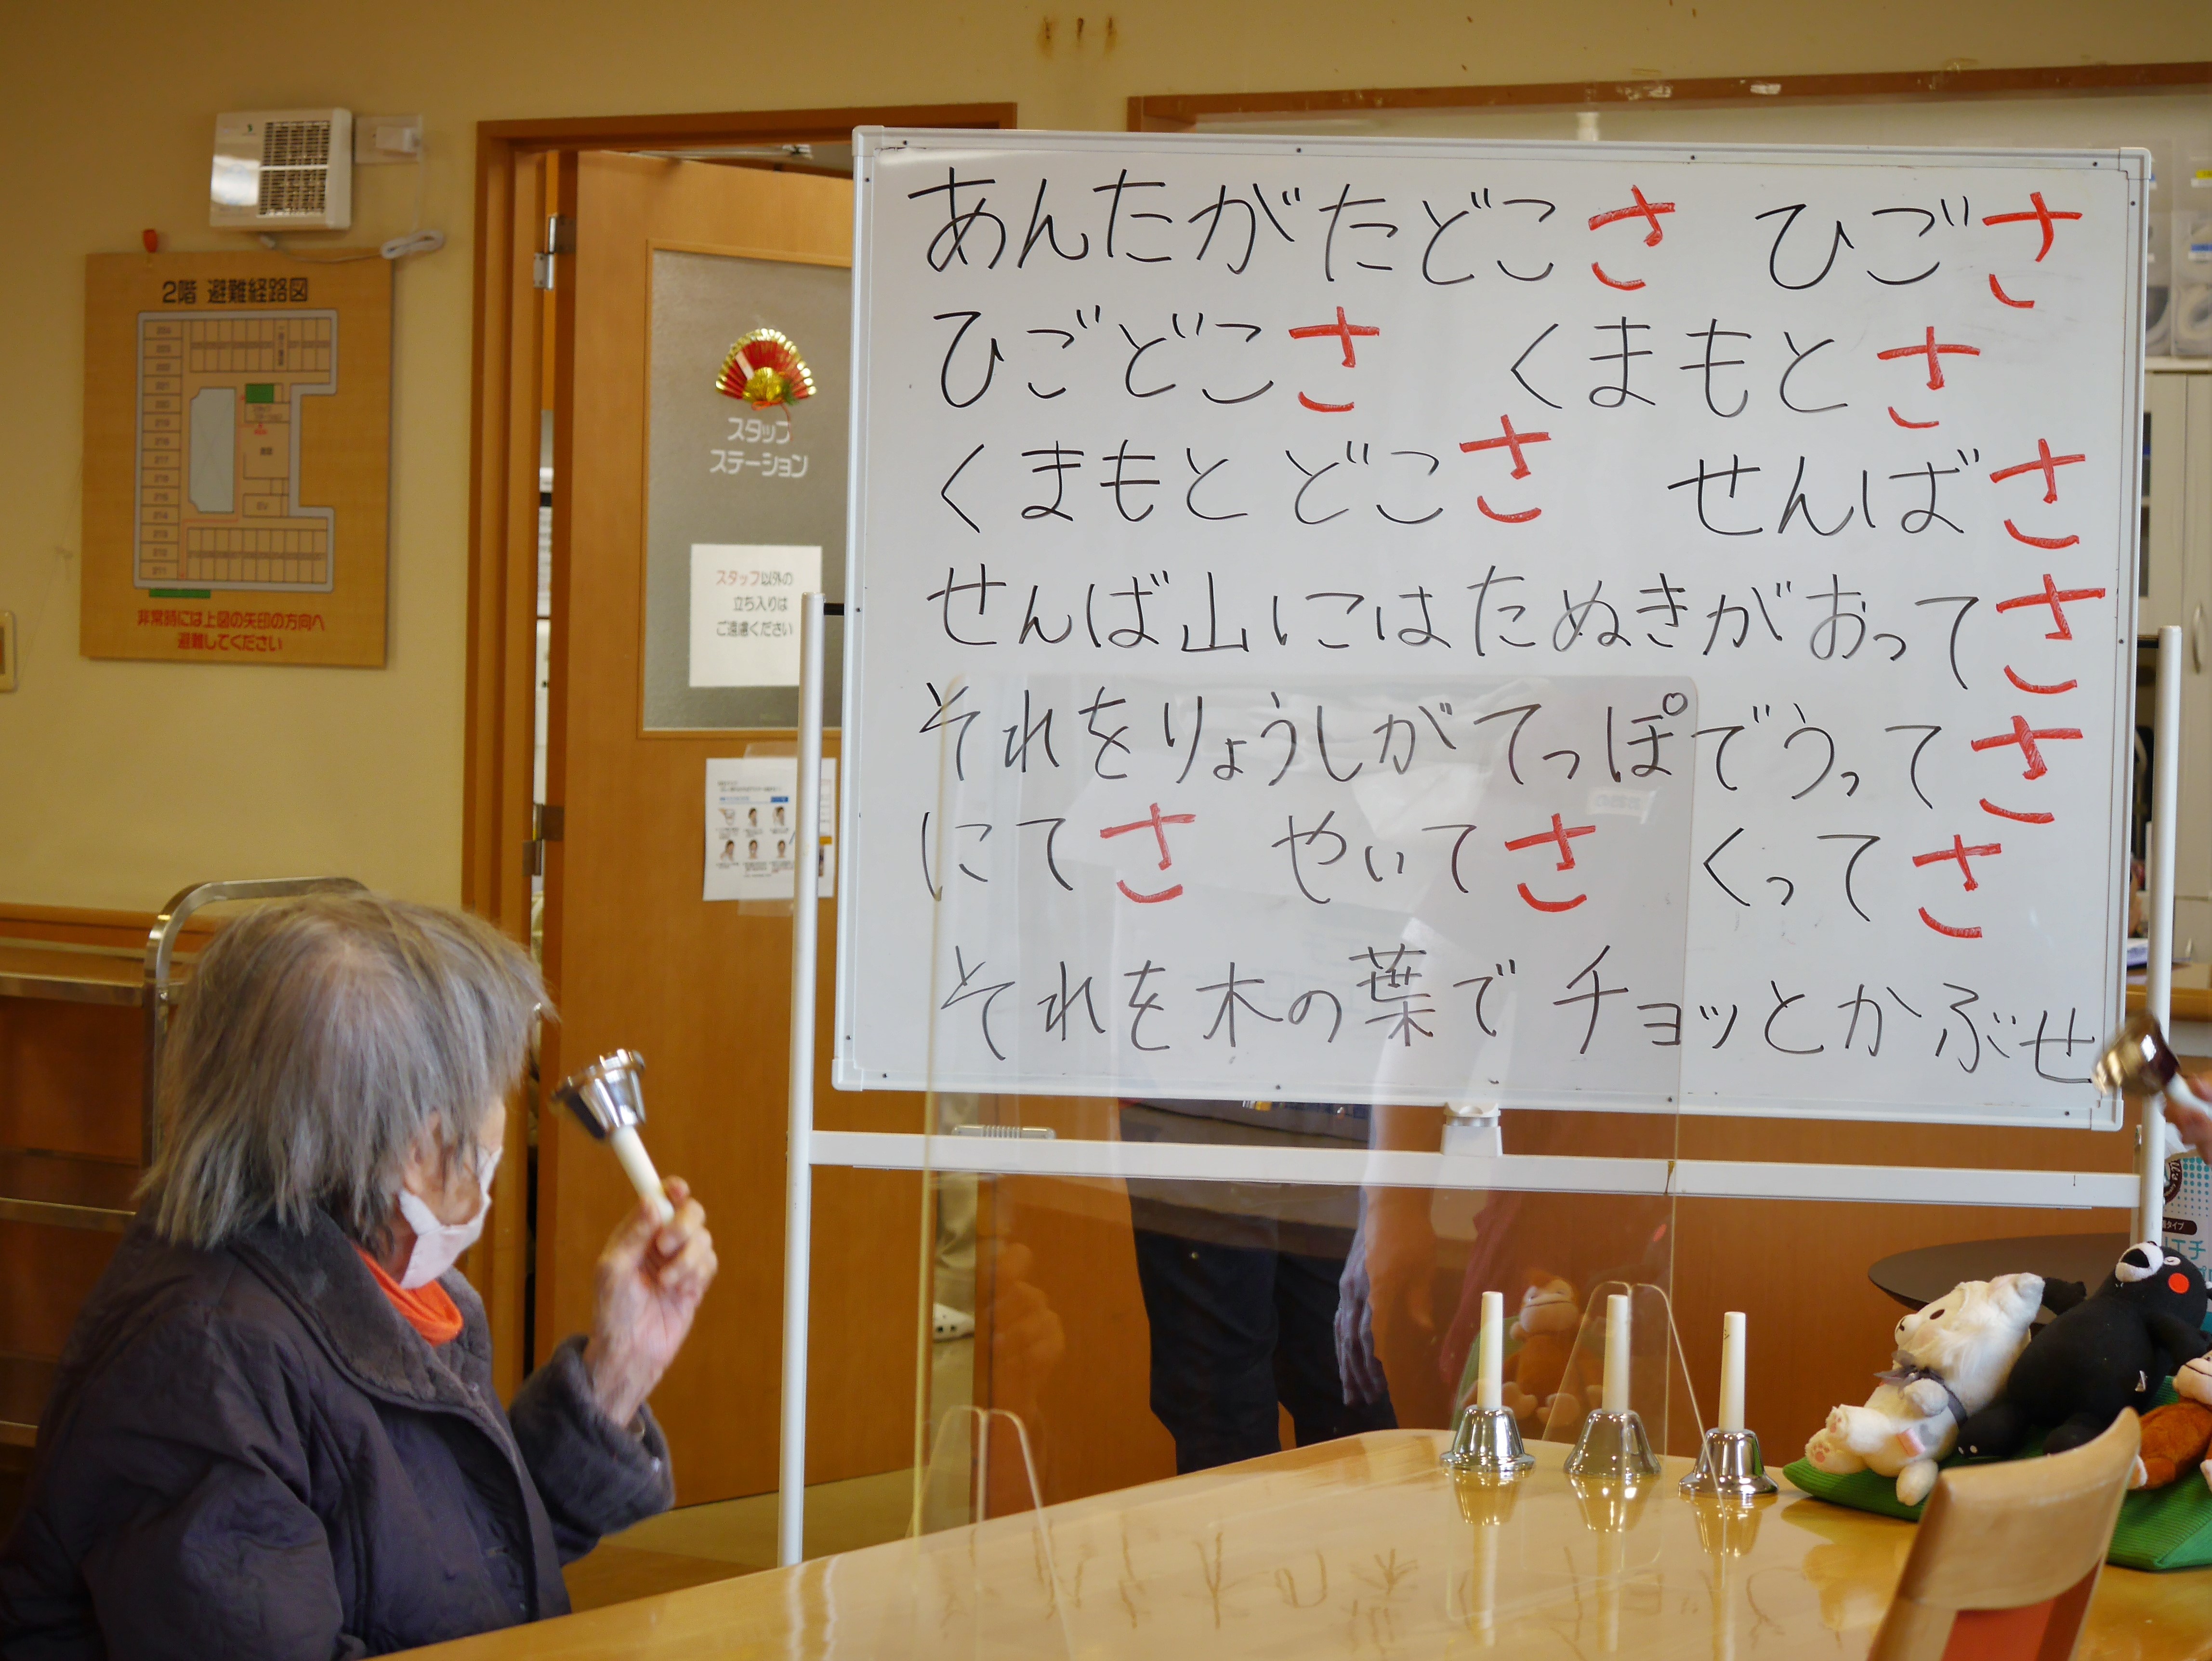 2階 避難経路図
非常時には上図の矢印の方向へ
避難してください
スタッフ
ステーション
スタッフ以外の
立ち入りは
ご遠慮ください
あんたがたどこさ ひごさ
ひごどこさ くまもとさ
くまもとどこさ せんばさ
せんば山にはたぬきがおってさ
それをりょうしがてっぽでうってさ
にてさ やいてさ くってさ
それを木の葉でチョッとかぶせ